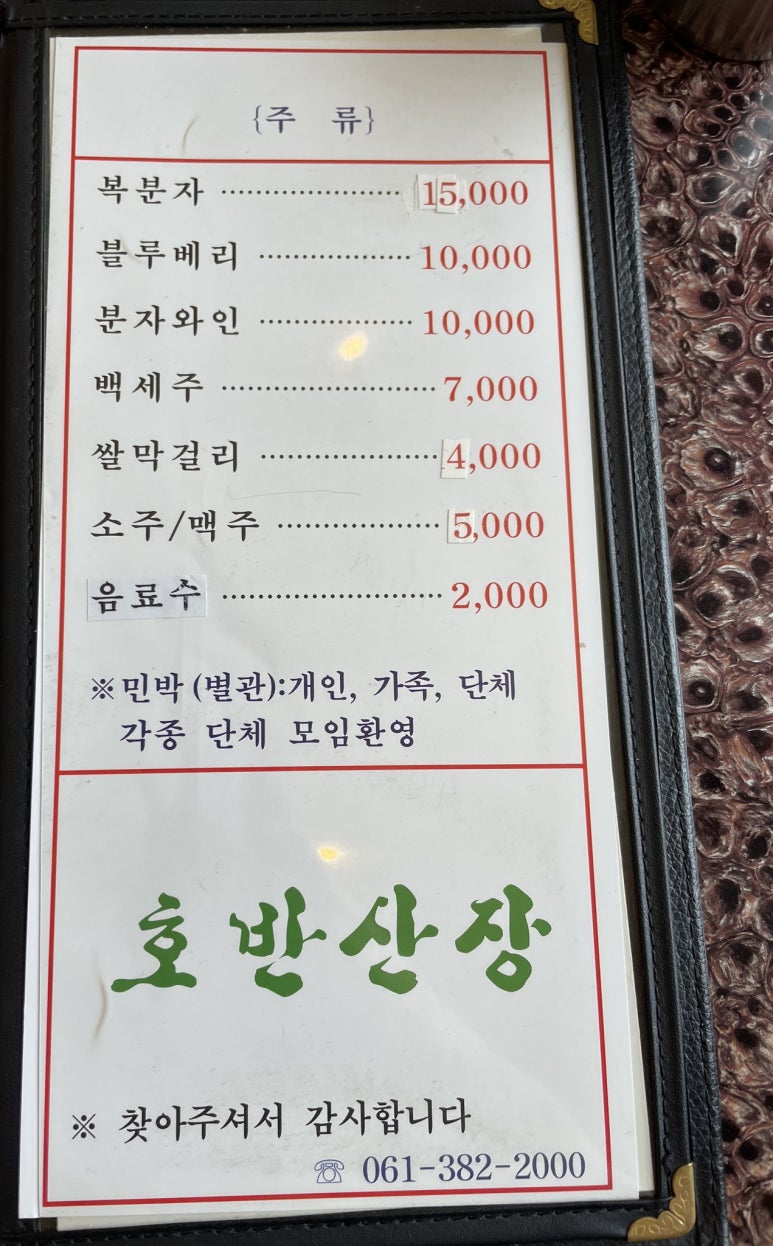 {주 류}
복분자 ···················· 15,000
블루베리 ·················· 10,000
분자와인 ·················· 10,000
백세주 ························ 7,000
쌀막걸리 ···················· 4,000
소주/맥주 ·················· 5,000
음료수 ························ 2,000
※민박(별관):개인, 가족, 단체
각종 단체 모임환영
호반산장
※ 찾아주셔서 감사합니다
☏ 061-382-2000